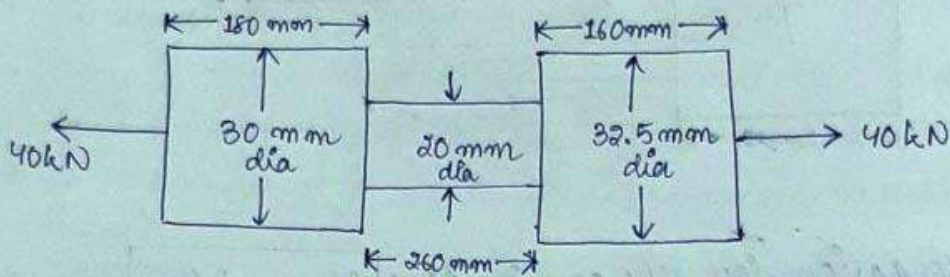 180 mm
160mm
40kN
30 mm
dia
20 mm
dia
32.5mm
dia
40kN
260 mm